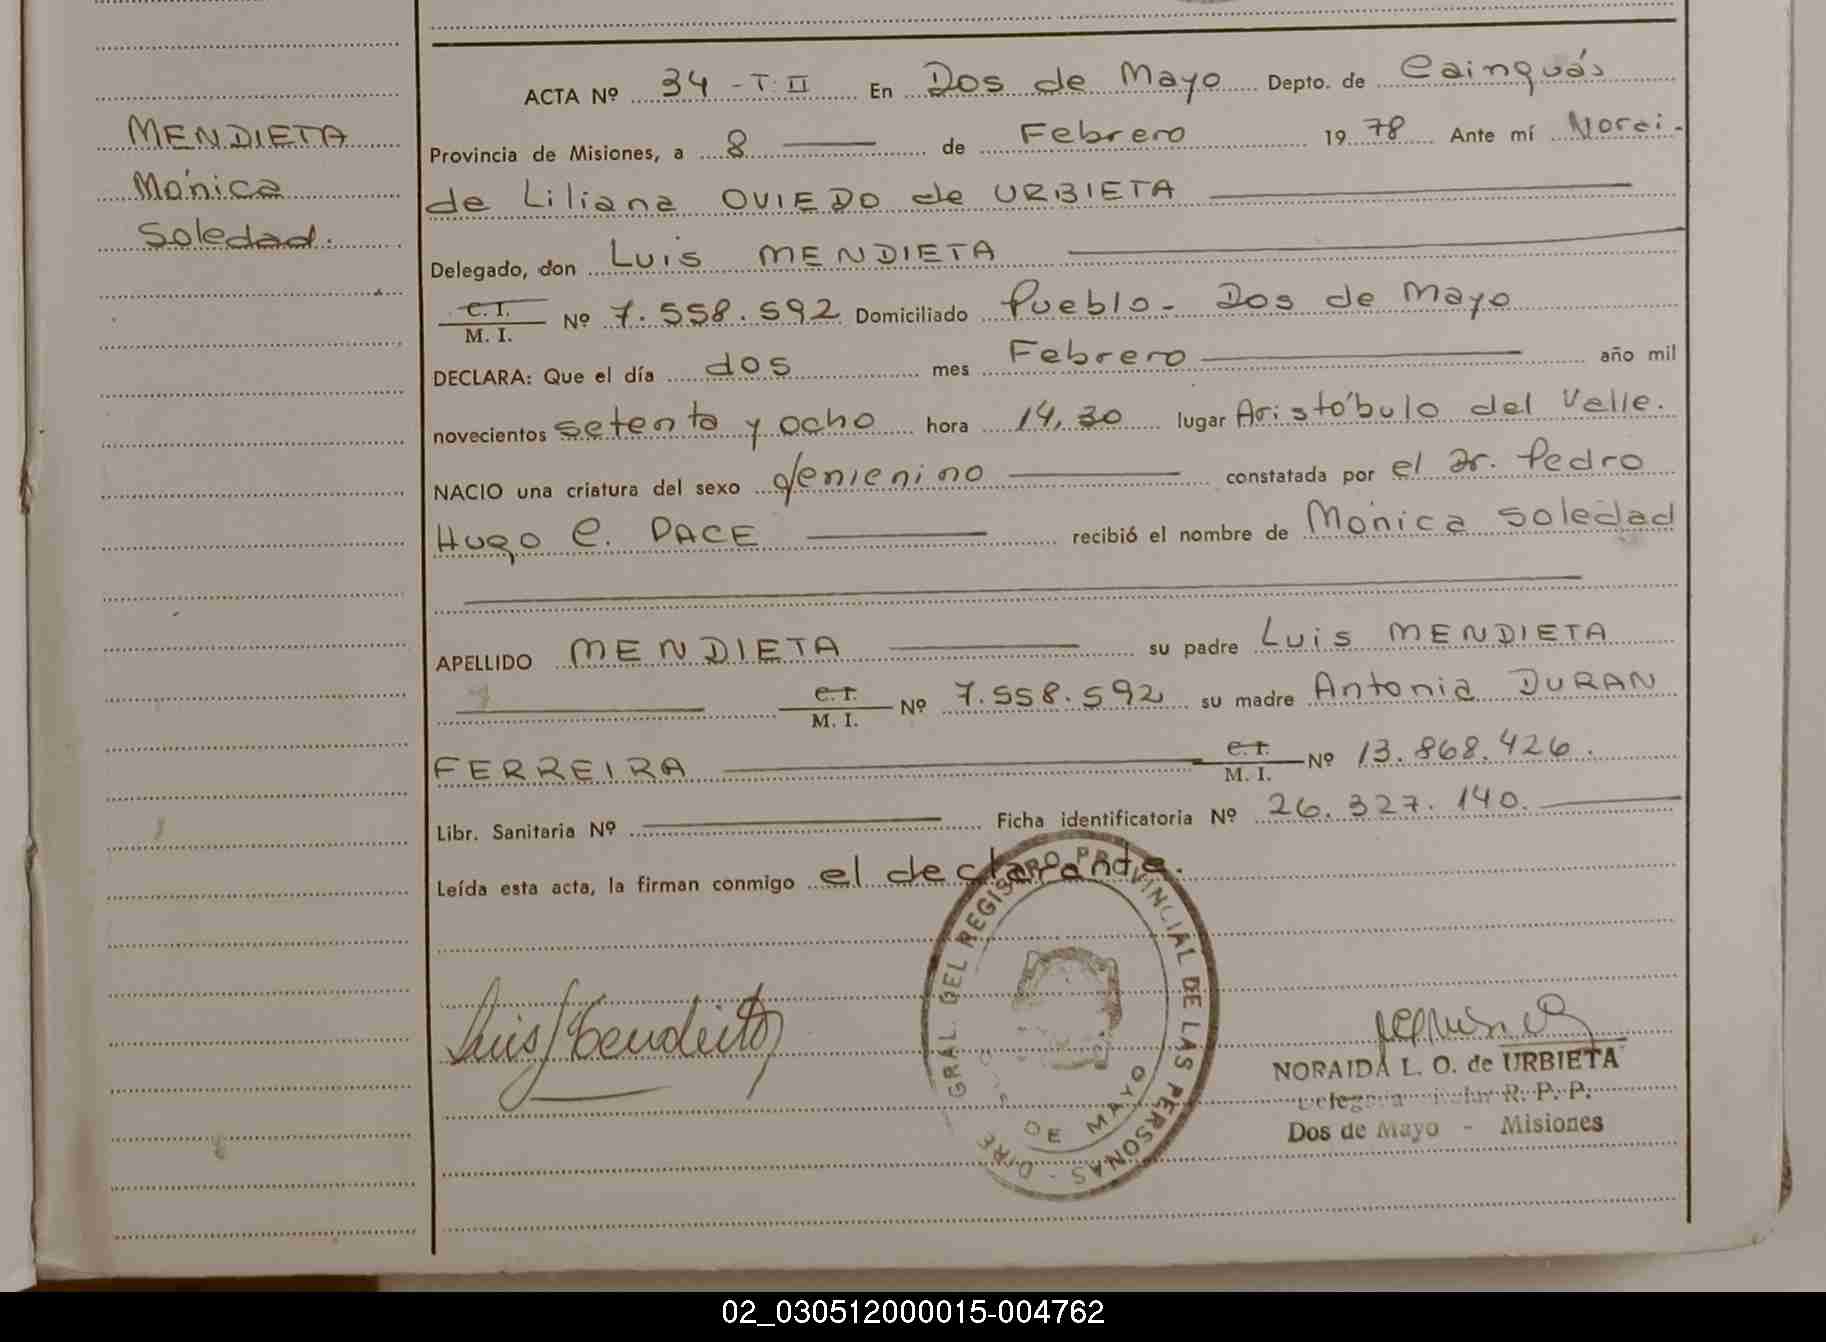 MENDIETA
Mónica
Soledad.
ACTA Nº 34 - T. II En Dos de Mayo Depto. de Cainguás
Provincia de Misiones, a 8 de Febrero 1978 Ante mí Norai-
de Liliana OVIEDO de URBIETA
Delegado, don Luis MENDIETA
C. I.
M. I. Nº 7.558.592 Domiciliado Pueblo - Dos de Mayo
DECLARA: Que el día dos mes Febrero año mil
novecientos setenta y ocho hora 14,30 lugar Aristóbulo del Valle.
NACIO una criatura del sexo femenino constatada por el Dr. Pedro
Hugo C. PACE recibió el nombre de Mónica Soledad
APELLIDO MENDIETA su padre Luis MENDIETA
C. I.
M. I. Nº 7.558.592 su madre Antonia DURAN
FERREIRA C. I.
M. I. Nº 13.868.426.
Libr. Sanitaria Nº Ficha identificatoria Nº 26.327.140.
Leída esta acta, la firman conmigo el declarante.
Luis Mendieta
DIRE GRAL. DEL REGISTRO PROVINCIAL DE LAS PERSONAS -
DE MAYO
NORAIDA L. O. de URBIETA
R. P. P.
Dos de Mayo - Misiones
02_030512000015-004762